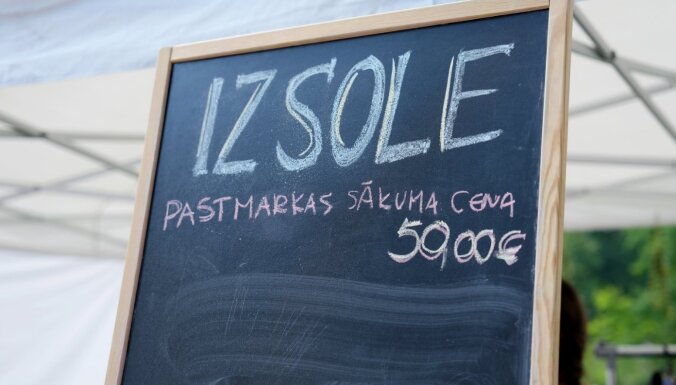 IZSOLE
PASTMARKAS SĀKUMA CENA
50,00€